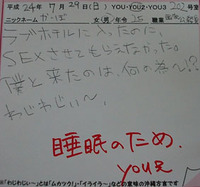 平成24年7月29日(日) YOU・YOU2・YOU3 202号室
ニックネーム かっぱ 女(男)年令 25 職業
ラブホテルに入ったのに、
SEXさせてもらえなかった。
僕と来たのは、何の為〜!?
わじわじぃ〜、
睡眠のため。
YOU兄
※「わじわじぃ〜」とは「ムカツク」「イライラ〜」などの意味の沖縄方言です